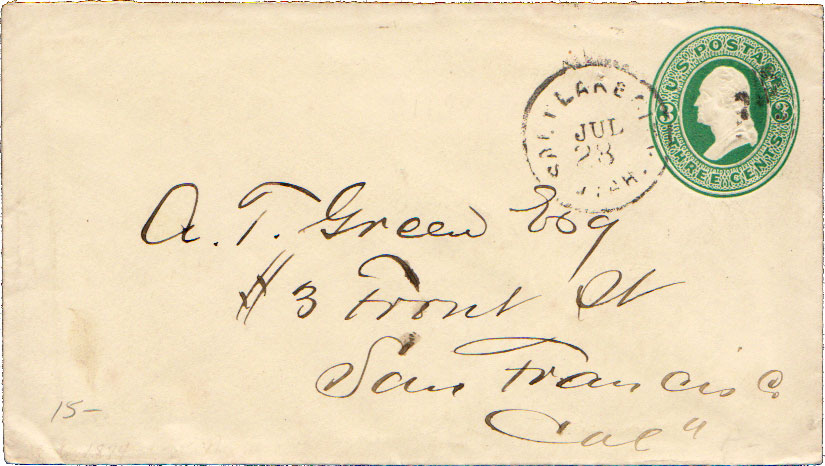 U.S. POSTAGE
3 3
THREE CENTS
SALT LAKE CITY
JUL
23
UTAH.
A. T. Green Esq
113 Front St
San Francisco
Cal"
15-